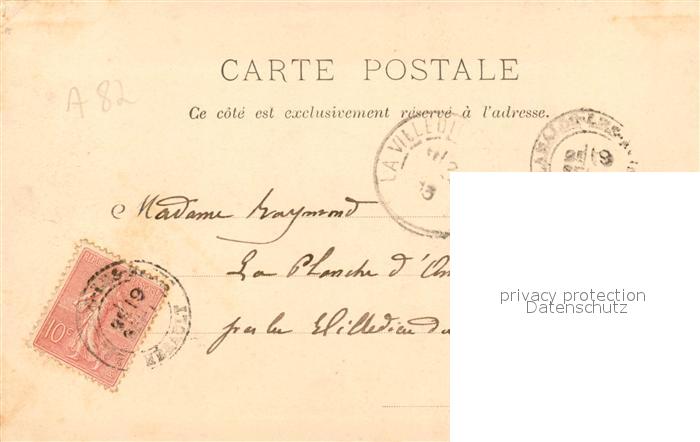 CARTE POSTALE
A 82
Ce côté est exclusivement réservé à l'adresse.
LA VILLEDI
Madame Raymond
La Planche d'An
par la Villedieu du
10 c
privacy protection
Datenschutz